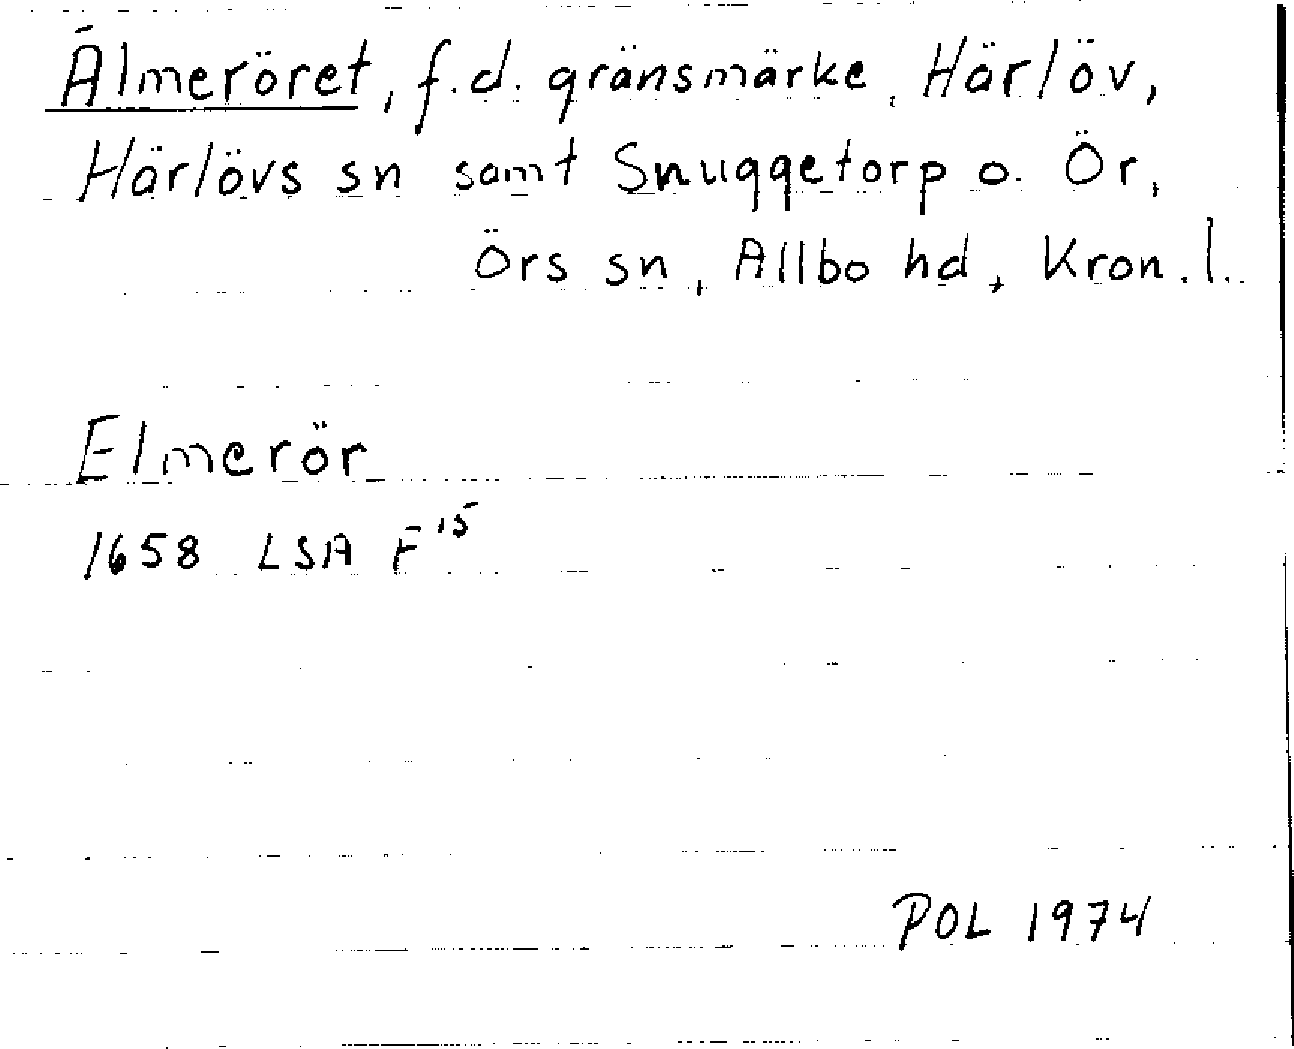 Älmeröret, f.d. gränsmärke, Härlöv,
Härlövs sn samt Snuggetorp o. Ör,
Örs sn, Allbo hd, Kron.l.
Elmerör
1658 LSA F 15
POL 1974